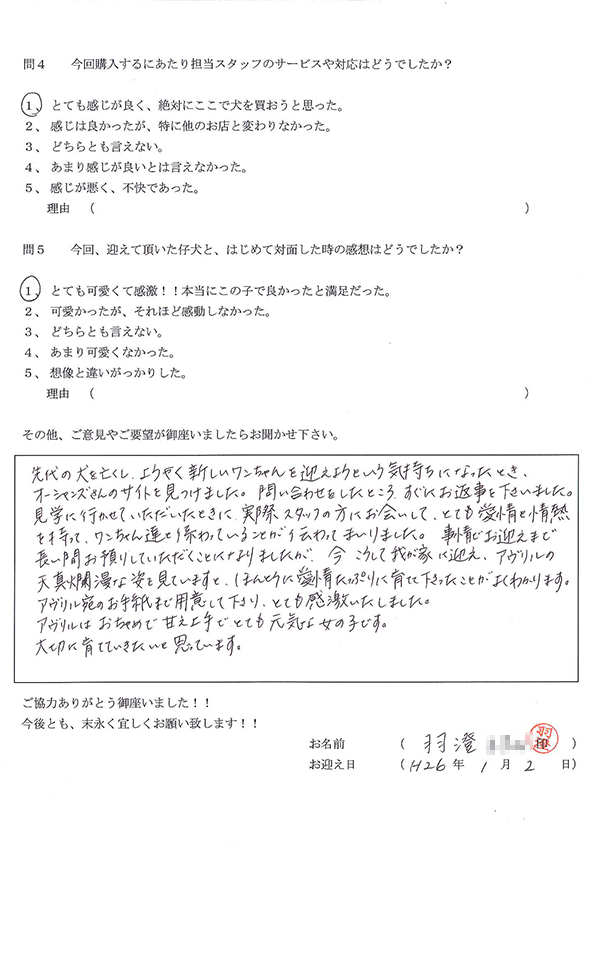 問４　今回購入するにあたり担当スタッフのサービスや対応はどうでしたか？
１、とても感じが良く、絶対にここで犬を買おうと思った。
２、感じは良かったが、特に他のお店と変わりなかった。
３、どちらとも言えない。
４、あまり感じが良いとは言えなかった。
５、感じが悪く、不快であった。
理由　（　　　）
問５　今回、迎えて頂いた仔犬と、はじめて対面した時の感想はどうでしたか？
１、とても可愛くて感激！！本当にこの子で良かったと満足だった。
２、可愛かったが、それほど感動しなかった。
３、どちらとも言えない。
４、あまり可愛くなかった。
５、想像と違いがっかりした。
理由　（　　　）
その他、ご意見やご要望が御座いましたらお聞かせ下さい。
先代の犬を亡くし、ようやく新しいワンちゃんを迎えようという気持ちになったとき、
オーシャンズさんのサイトを見つけました。問い合わせをしたところ、すぐにお返事を下さいました。
見学に行かせていただいたときに、実際スタッフの方にお会いして、とても愛情と情熱
を持って、ワンちゃん達と係わっていることが伝わってまいりました。事情でお迎えまで
長い間お預りしていただくことになりましたが、今こうして我が家に迎え、アヴリルの
天真爛漫な姿を見ていますと、ほんとうに愛情たっぷりに育てて下さったことがよくわかります。
アヴリル宛のお手紙まで用意して下さり、とても感激いたしました。
アヴリルはおちゃめで甘え上手でとても元気な女の子です。
大切に育てていきたいと思っています。
ご協力ありがとう御座いました！！
今後とも、末永く宜しくお願い致します！！
お名前　（　羽澄　印　）
お迎え日　（H26年　1月　2日）